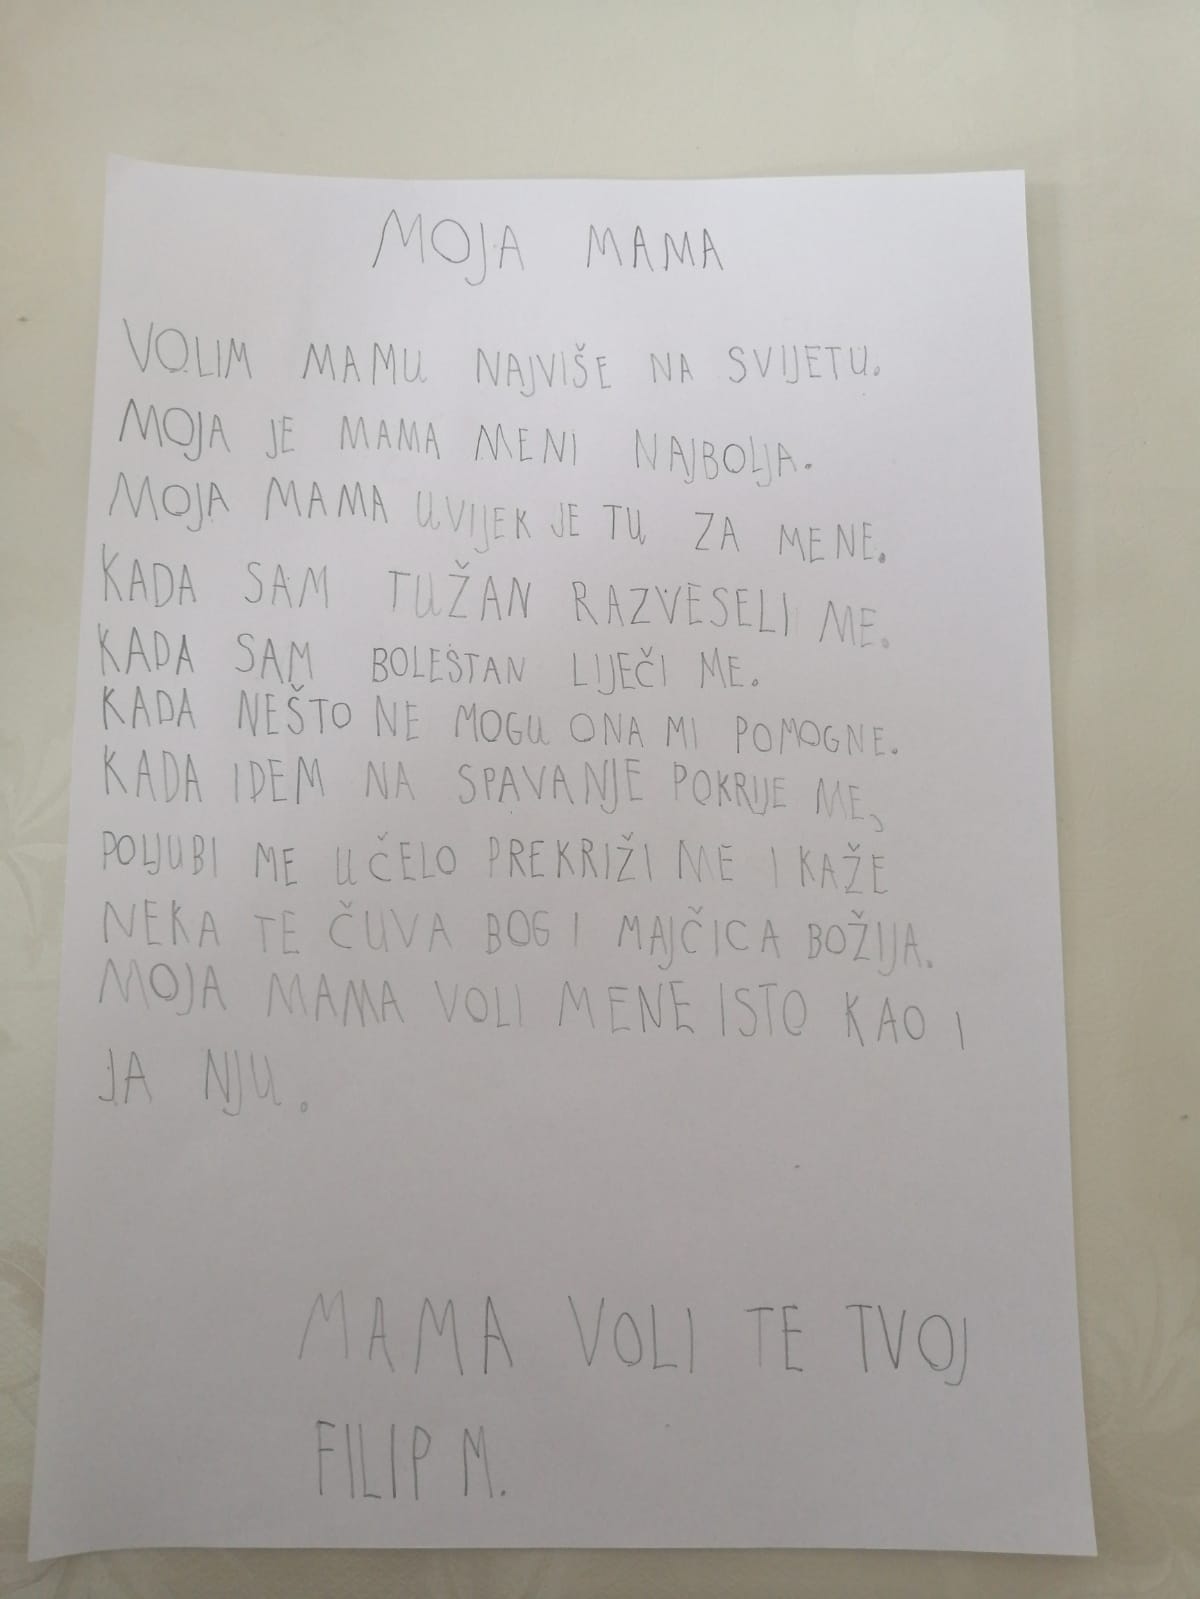 MOJA MAMA
VOLIM MAMU NAJVIŠE NA SVIJETU.
MOJA JE MAMA MENI NAJBOLJA.
MOJA MAMA UVIJEK JE TU ZA MENE.
KADA SAM TUŽAN RAZVESELI ME.
KADA SAM BOLESTAN LIJEČI ME.
KADA NEŠTO NE MOGU ONA MI POMOGNE.
KADA IDEM NA SPAVANJE POKRIJE ME,
POLJUBI ME U ČELO PREKRIŽI ME I KAŽE
NEKA TE ČUVA BOG I MAJČICA BOŽIJA.
MOJA MAMA VOLI MENE ISTO KAO I
JA NJU.
MAMA VOLI TE TVOJ
FILIP M.